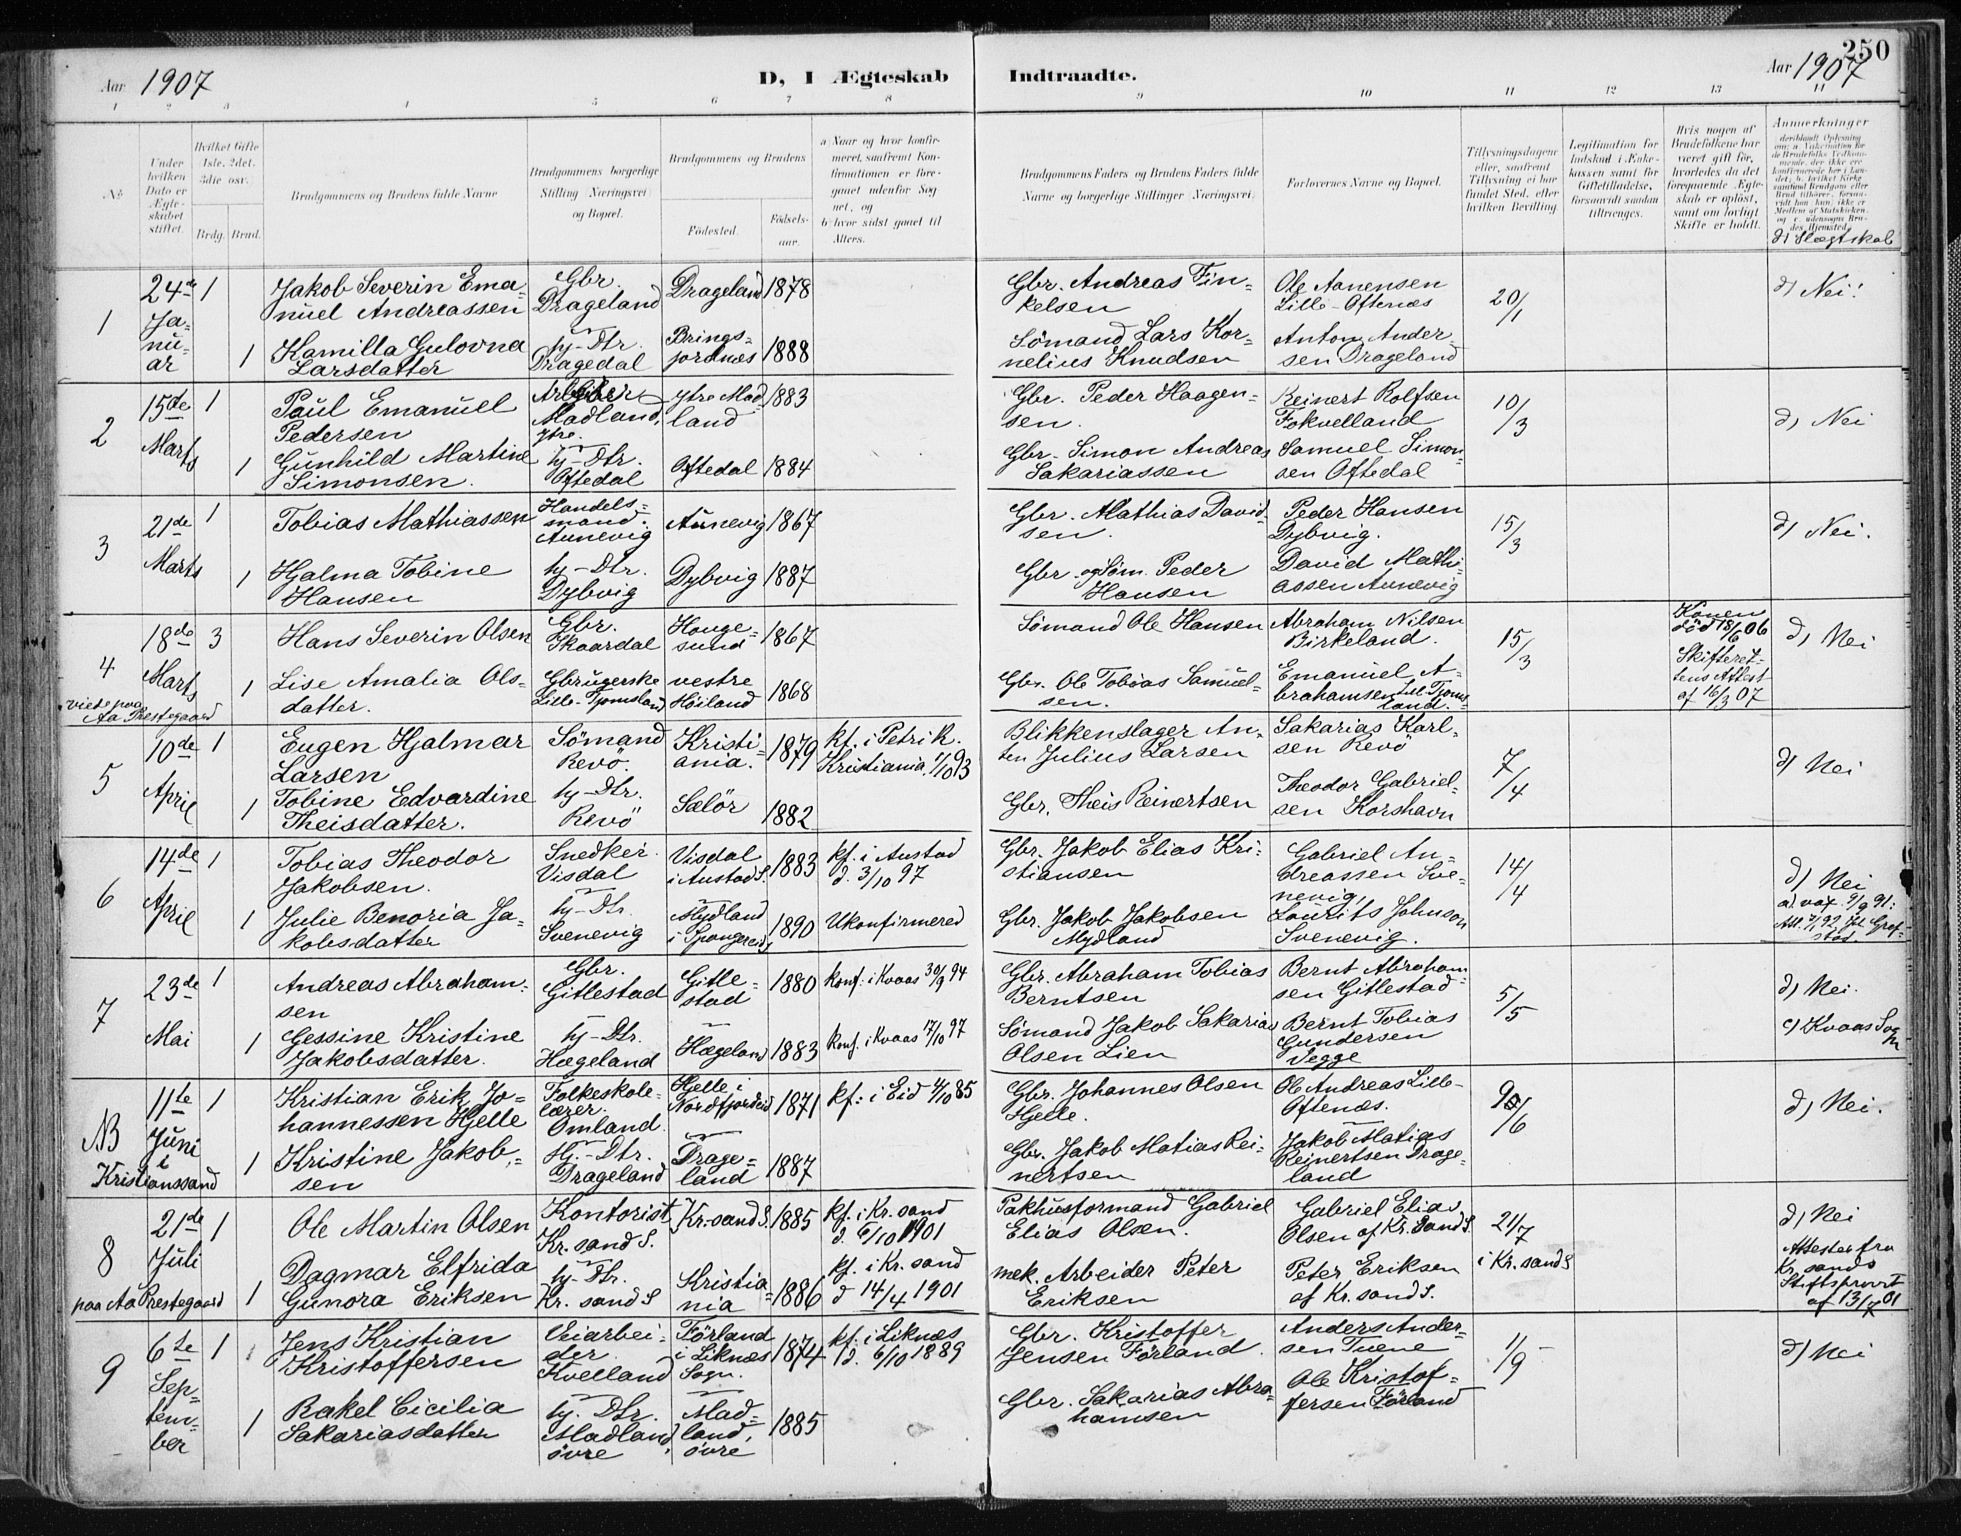 250
Aar 1907
D, I Ægteskab Indtraadte.
Aar 1907
1 2 3 4 5 6 7 8 9 10 11 12 13 14
No
Under hvilken Dato er Ægteskabet stiftet.
Hvilket Gifte 1ste, 2det, 3die osv.
Brdg. Brud.
Brudgommens og Brudens fulde Navne
Brudgommens borgerlige Stilling (Næringsvei) og Bopæl.
Brudgommens og Brudens
Fødested.
Fødselsaar.
a Naar og hvor konfirmeret, saafremt Konfirmationen er foregaaet udenfor Sognet, og
b hvor sidst gaaet til Alters.
Brudgommens Faders og Brudens Faders fulde Navne og borgerlige Stillinger (Næringsvei).
Forlovernes Navne og Bopæl.
Tillysningsdagene eller, saafremt Tillysning ei har fundet Sted, efter hvilken Bevilling.
Legitimation for Indskud i Enkekassen samt for Giftetilladelse, forsaavidt saadan tiltrænges.
Hvis nogen af Brudefolkene har været gift før, hvorledes da det foregaaende Ægteskab er opløst, samt om lovligt Skifte er holdt.
Anmerkninger
d) Slægtskab
1
24de Januar
1
Jakob Severin Emanuel Andreassen
Gbr. Drageland
Drageland
1878
Gbr. Andreas Finkelsen
Ole Aanensen Lille-Oftenæs
20/1
d) Nei!
1
Kamilla Gulovna Larsdatter
hj-Dtr. Dragedal
Bringsjordnes
1888
Sömand Lars Kornelius Knudsen
Anton Andersen Drageland
2
15de Marts
1
Paul Emanuel Pedersen
Arbeider Madland, ytre.
ytre Madland
1883
Gbr. Peder Haagensen.
Reinert Rolfsen Fokvelland
10/3
d) Nei
1
Gunhild Martine Simonsen.
hj-Dtr. Oftedal
Oftedal
1884
Gbr. Simon Andreas Sakariassen
Samuel Simonsen Oftedal
3
21de Marts
1
Tobias Mathiassen
Handelsmand. Aunevig
Aunevig
1867
Gbr. Mathias Davidsen.
Peder Hansen Dybvig.
15/3
d) Nei.
1
Hjalma Tobine Hansen
hj-Dtr. Dybvig
Dybvig
1887
Gbr og Söm. Peder Hansen
David Mathiassen Aunevig
4
viede paa Aa Prestegaard
18de Marts
3
Hans Severin Olsen
Gbr. Skaardal
Hougesund
1867
Sömand Ole Hansen
Abraham Nilsen Birkeland.
15/3
Konen död 18/6 06
Skifterettens Attest af 16/3 07
d) Nei
1
Lise Amalia Olsdatter.
Gbrugerske Lille-Tjomsland
vestre Höiland
1868
Gbr. Ole Tobias Samuelsen.
Emanuel Abrahamsen Lil. Tjomsland.
5
10de April
1
Eugen Hjalmar Larsen
Sömand Revö.
Kristiania.
1879
kf. i Petri K. Kristiania 1/10 93
Blikkenslager Anten Julius Larsen
Sakarias Karlsen Revö
7/4
d) Nei
1
Tobine Edvardine Theisdatter.
hj-Dtr. Revö
Sælör
1882
Gbr. Theis Reinertsen
Theodor Gabrielsen Korshavn
6
14de April
1
Tobias Theodor Jakobsen.
Snedker Visdal
Visdal i Austad S.
1883
kf. i Austad d. 3/10 97
Gbr. Jakob Elias Kristiansen
Gabriel Andreassen Svenevig,
14/4
d) Nei
1
Julie Benoria Jakobsdatter
hj-Dtr. Svenevig
Mydland i Spangereid
1890
Ukonfirmered
Gbr. Jakob Jakobsen Mydland
Lourits Johnson Svenevig.
7
23de Mai
1
Andreas Abrahamsen
Gbr. Gitlestad
Gitlestad
1880
konf: i Kvaas 30/9 94
Gbr. Abraham Tobias Berntsen
Bernt Abrahamsen Gitlestad
5/5
d) Nei.
c) Kvaas Sogn
1
Gessine Kristine Jakobsdatter.
hj-Dtr. Hægeland
Hægeland
1883
konf. i Kvaas 17/10 97
Sömand Jakob Sakarias Olsen Lien
Bernt Tobias Gundersen Vegge
NB
i Kristianssand
11te Juni
1
Kristian Erik Johannessen Hjelle
Folkeskolelærer. Omland.
Hjelle i Nordfjordeid
1871
kf: i Eid 4/10 85
Gbr. Johannes Olsen Hjelle.
Ole Andreas Lille-Oftenæs.
9/6
d) Nei.
1
Kristine Jakobsen
Hj.-Dtr. Drageland
Drageland
1887
Gbr. Jakob Matias Reinertsen
Jakob Matias Reinertsen Drageland
8
paa Aa Prestegaard
21de Juli
1
Ole Martin Olsen
Kontorist Kr. sand S.
Kr. sand S.
1885
kf. i Kr. sand d. 6/10 1901
Pakhusformand Gabriel Elias Olsen.
Gabriel Elias Olsen af Kr. sand S.
21/7
i Kr. sand S
d) Nei
Attester fra Kr. sands Stiftsprovst
1
Dagmar Elfrida Gunora Eriksen
hj-Dtr. Kr. sand S
Kristiania
1886
kf. i Kr. sand d 14/4 1901
mek. Arbeider Peter Eriksen
Peter Eriksen af Kr. sand S.
9
6te September
1
Jens Kristian Kristoffersen
Veiarbeider. Kvelland
Förland i Liknæs Sogn.
1874
kf: i Liknæs d. 6/10 1889
Gbr. Kristoffer Jensen Förland.
Anders Andersen Tuene
1/9
d) Nei
1
Rakel Cicilia Sakariasdatter
hj. Dtr. Madland, övre
Madland, övre
1885
Gbr. Sakarias Abrahamsen
Ole Kristoffersen Förland